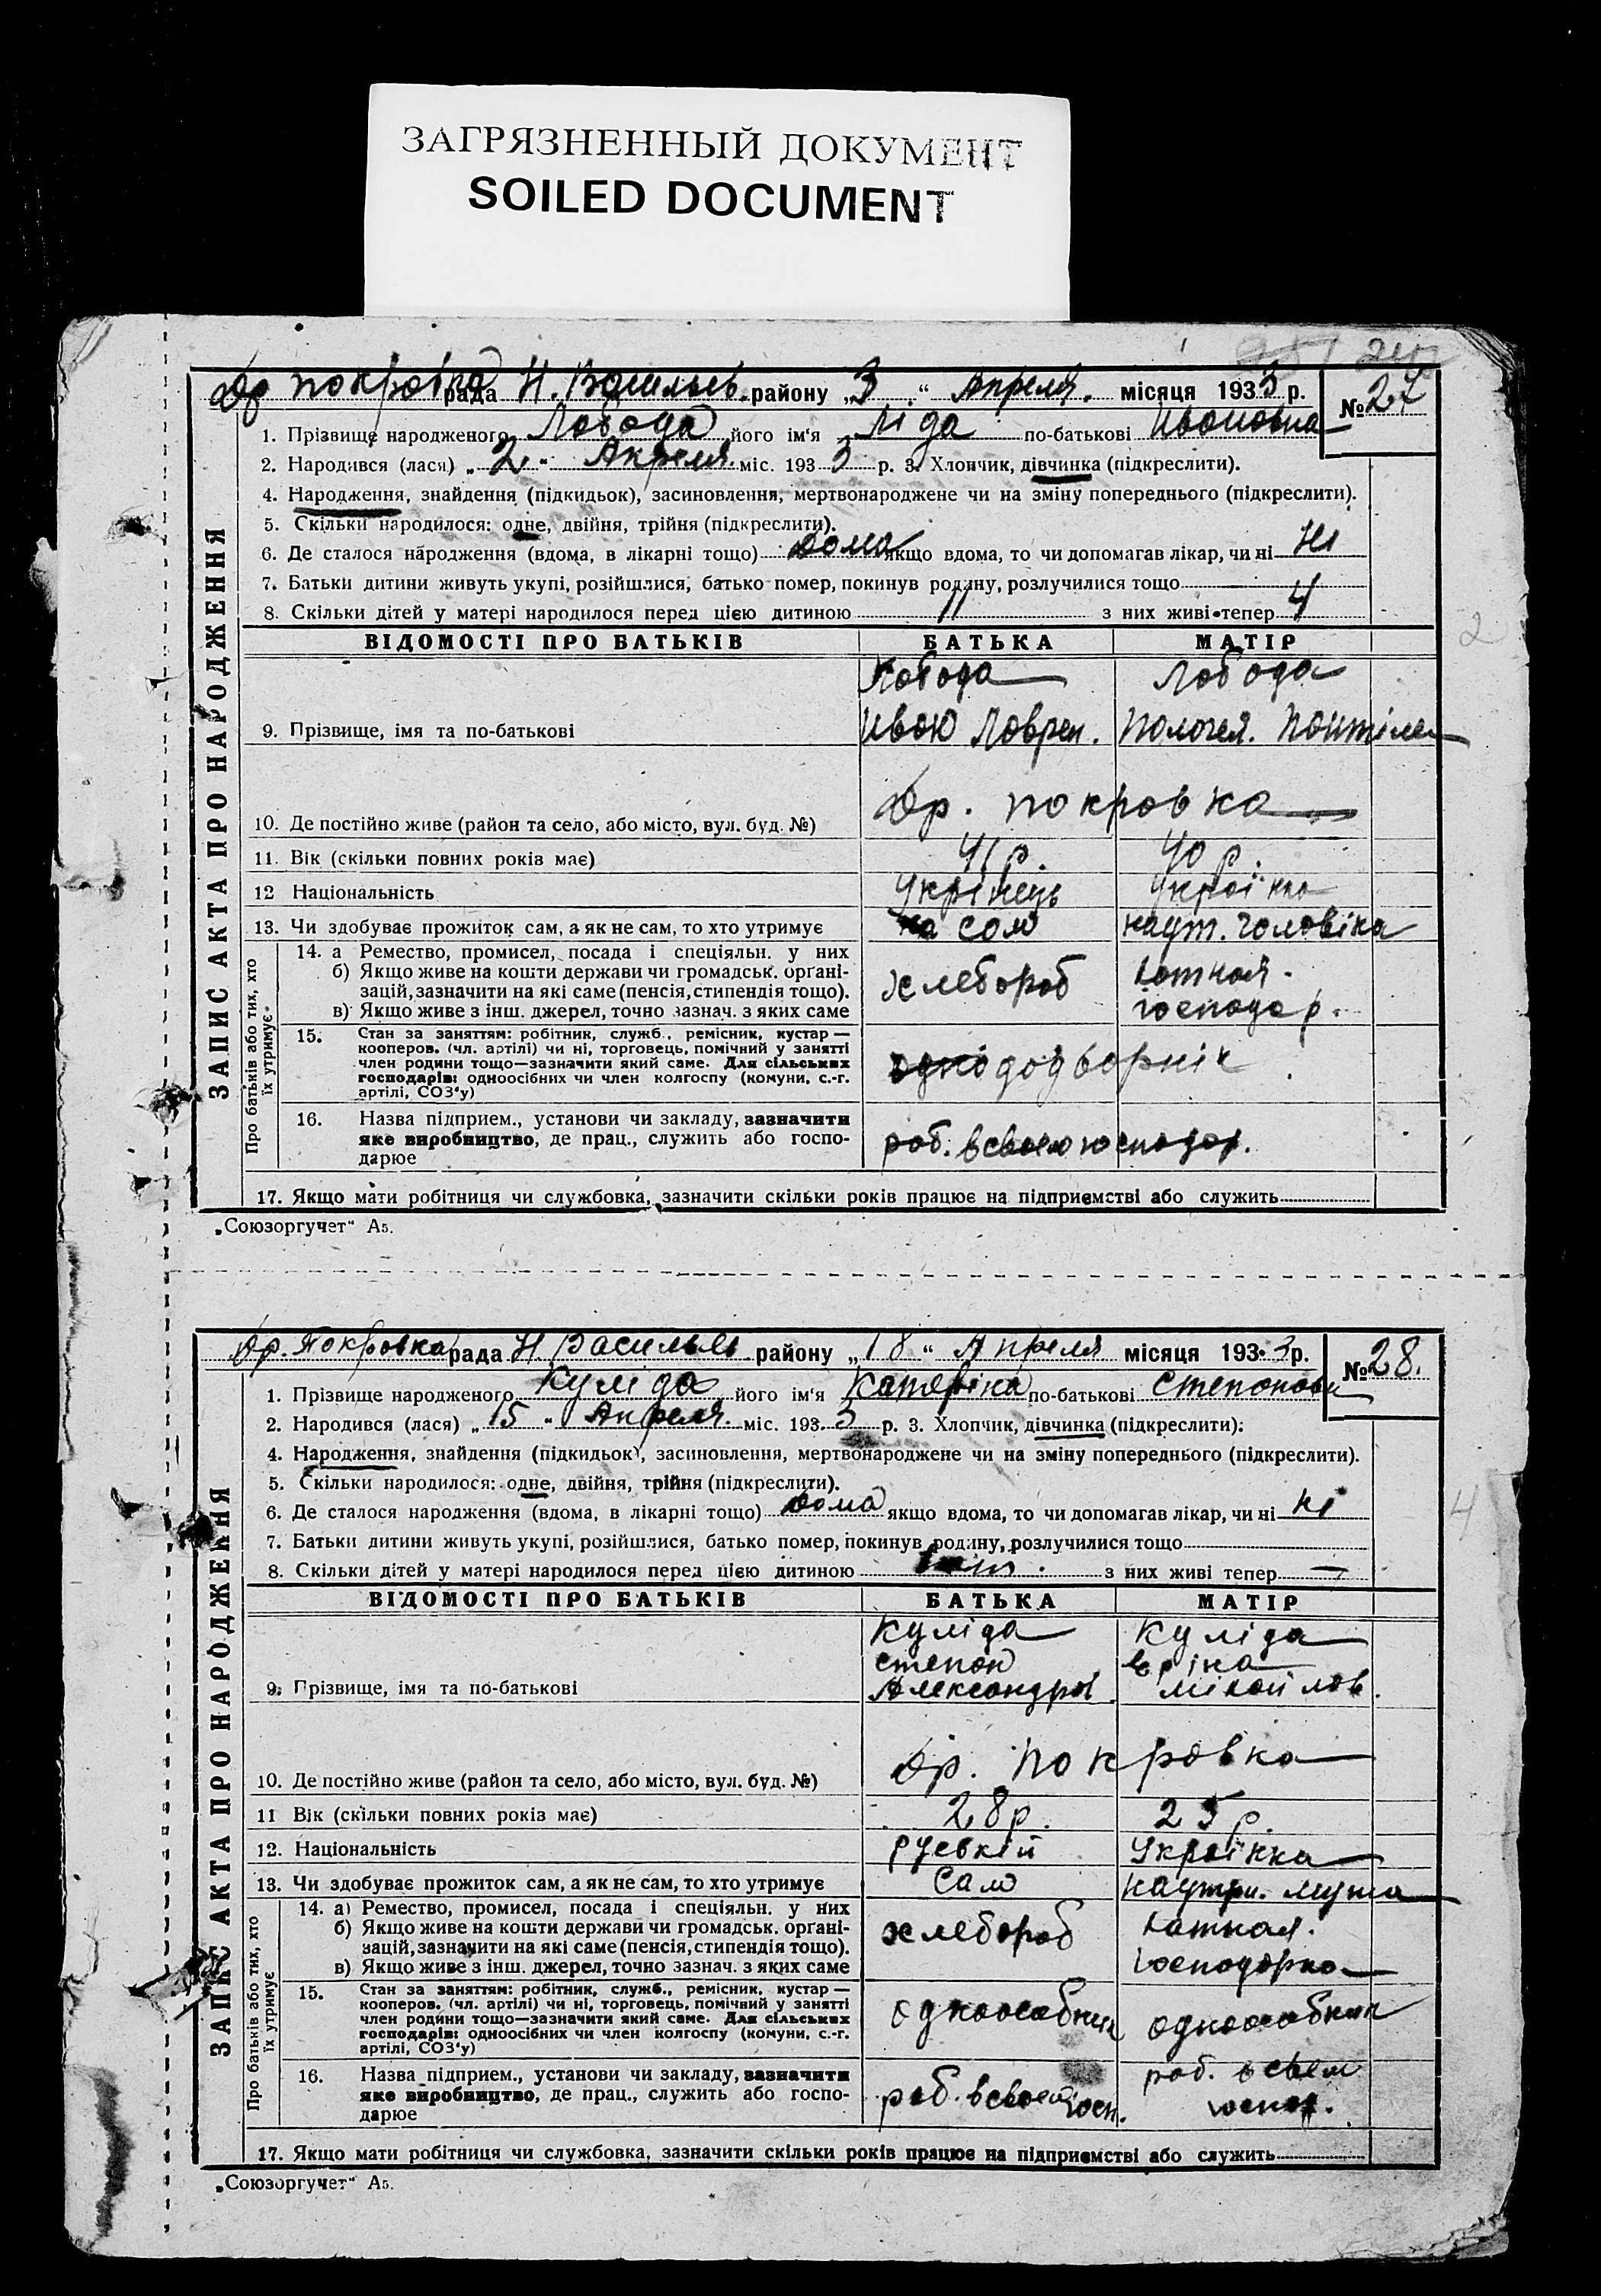 ЗАГРЯЗНЕННЫЙ ДОКУМЕНТ
SOILED DOCUMENT
Др покровка рада Н. Васильев. району „3“ Апреля. місяця 1933 р. № 27
1. Прізвище народженого Лобода його ім'я Ліда по-батькові Ивановна
2. Народився (лася) „2“ Апреля міс. 1933 р. 3. Хлопчик, дівчинка (підкреслити).
4. Народження, знайдення (підкидьок), засиновлення, мертвонароджене чи на зміну попереднього (підкреслити).
5. Скільки народилося: одне, двійня, трійня (підкреслити).
6. Де сталося народження (вдома, в лікарні тощо) дома якщо вдома, то чи допомагав лікар, чи ні Ні
7. Батьки дитини живуть укупі, розійшлися, батько помер, покинув родину, розлучилися тощо
8. Скільки дітей у матері народилося перед цією дитиною 11 з них живі тепер 4
ВІДОМОСТІ ПРО БАТЬКІВ БАТЬКА МАТІР
Лобода Лобода
9. Прізвище, імя та по-батькові Иван Лаврен.
10. Де постійно живе (район та село, або місто, вул. буд. №) др. покровка
11. Вік (скільки повних років має) 41 р. 40 р.
12 Національність Украінець Украінка
13. Чи здобуває прожиток сам, а як не сам, то хто утримує сам чоловіка
14. а Ремество, промисел, посада і спеціяльн. у них
б) Якщо живе на кошти держави чи громадськ. органі-
зацій, зазначити на які саме (пенсія, стипендія тощо). хлебороб хатная
в) Якщо живе з інш. джерел, точно зазнач. з яких саме господар.
15. Стан за заняттям: робітник, служб., ремісник, кустар —
кооперов. (чл. артілі) чи ні, торговець, помічний у занятті
член родини тощо—зазначити який саме. Для сільських
господарів: одноосібних чи член колгоспу (комуни, с.-г.
артілі, СОЗ'у)
16. Назва підприєм., установи чи закладу, зазначити
яке виробництво, де прац., служить або госпо- роб. в своем господар.
дарює
17. Якщо мати робітниця чи службовка, зазначити скільки років працює на підприємстві або служить
ЗАПИС АКТА ПРО НАРОДЖЕННЯ
Про батьків або тих, хто
їх утримує
„Союзоргучет“ А5.
др. Покровка рада Н Васильев району „18“ Апреля місяця 1933р. № 28.
1. Прізвище народженого Куліда його ім'я Катеріна по-батькові Степанови
2. Народився (лася) „15“ Апреля міс. 1933 р. 3. Хлопчик, дівчинка (підкреслити).
4. Народження, знайдення (підкидьок), засиновлення, мертвонароджене чи на зміну попереднього (підкреслити).
5. Скільки народилося: одне, двійня, трійня (підкреслити).
6. Де сталося народження (вдома, в лікарні тощо) дома якщо вдома, то чи допомагав лікар, чи ні Ні
7. Батьки дитини живуть укупі, розійшлися, батько помер, покинув родину, розлучилися тощо
8. Скільки дітей у матері народилося перед цією дитиною з них живі тепер —
ВІДОМОСТІ ПРО БАТЬКІВ БАТЬКА МАТІР
Куліда Куліда
степан
9. Прізвище, імя та по-батькові Александров. міхайлов.
10. Де постійно живе (район та село, або місто, вул. буд. №) др. покровка
11 Вік (скільки повних років має) 28 р. 25 р.
12. Національність рускій Украінка
13. Чи здобуває прожиток сам, а як не сам, то хто утримує Сам мужа
14. а) Ремество, промисел, посада і спеціяльн. у них
б) Якщо живе на кошти держави чи громадськ. органі- хлебороб хатная.
зацій, зазначити на які саме (пенсія, стипендія тощо).
в) Якщо живе з інш. джерел, точно зазнач. з яких саме господарка
15. Стан за заняттям: робітник, служб., ремісник, кустар —
кооперов. (чл. артілі) чи ні, торговець, помічний у занятті
член родини тощо—зазначити який саме. Для сільських одноособник одноособник
господарів: одноосібних чи член колгоспу (комуни, с.-г.
артілі, СОЗ'у)
16. Назва підприєм., установи чи закладу, зазначити роб. в своем
яке виробництво, де прац., служить або госпо- роб. в своем госп. госпо.
дарює
17. Якщо мати робітниця чи службовка, зазначити скільки років працює на підприємстві або служить
ЗАПИС АКТА ПРО НАРОДЖЕННЯ
Про батьків або тих, хто
їх утримує
„Союзоргучет“ А5.